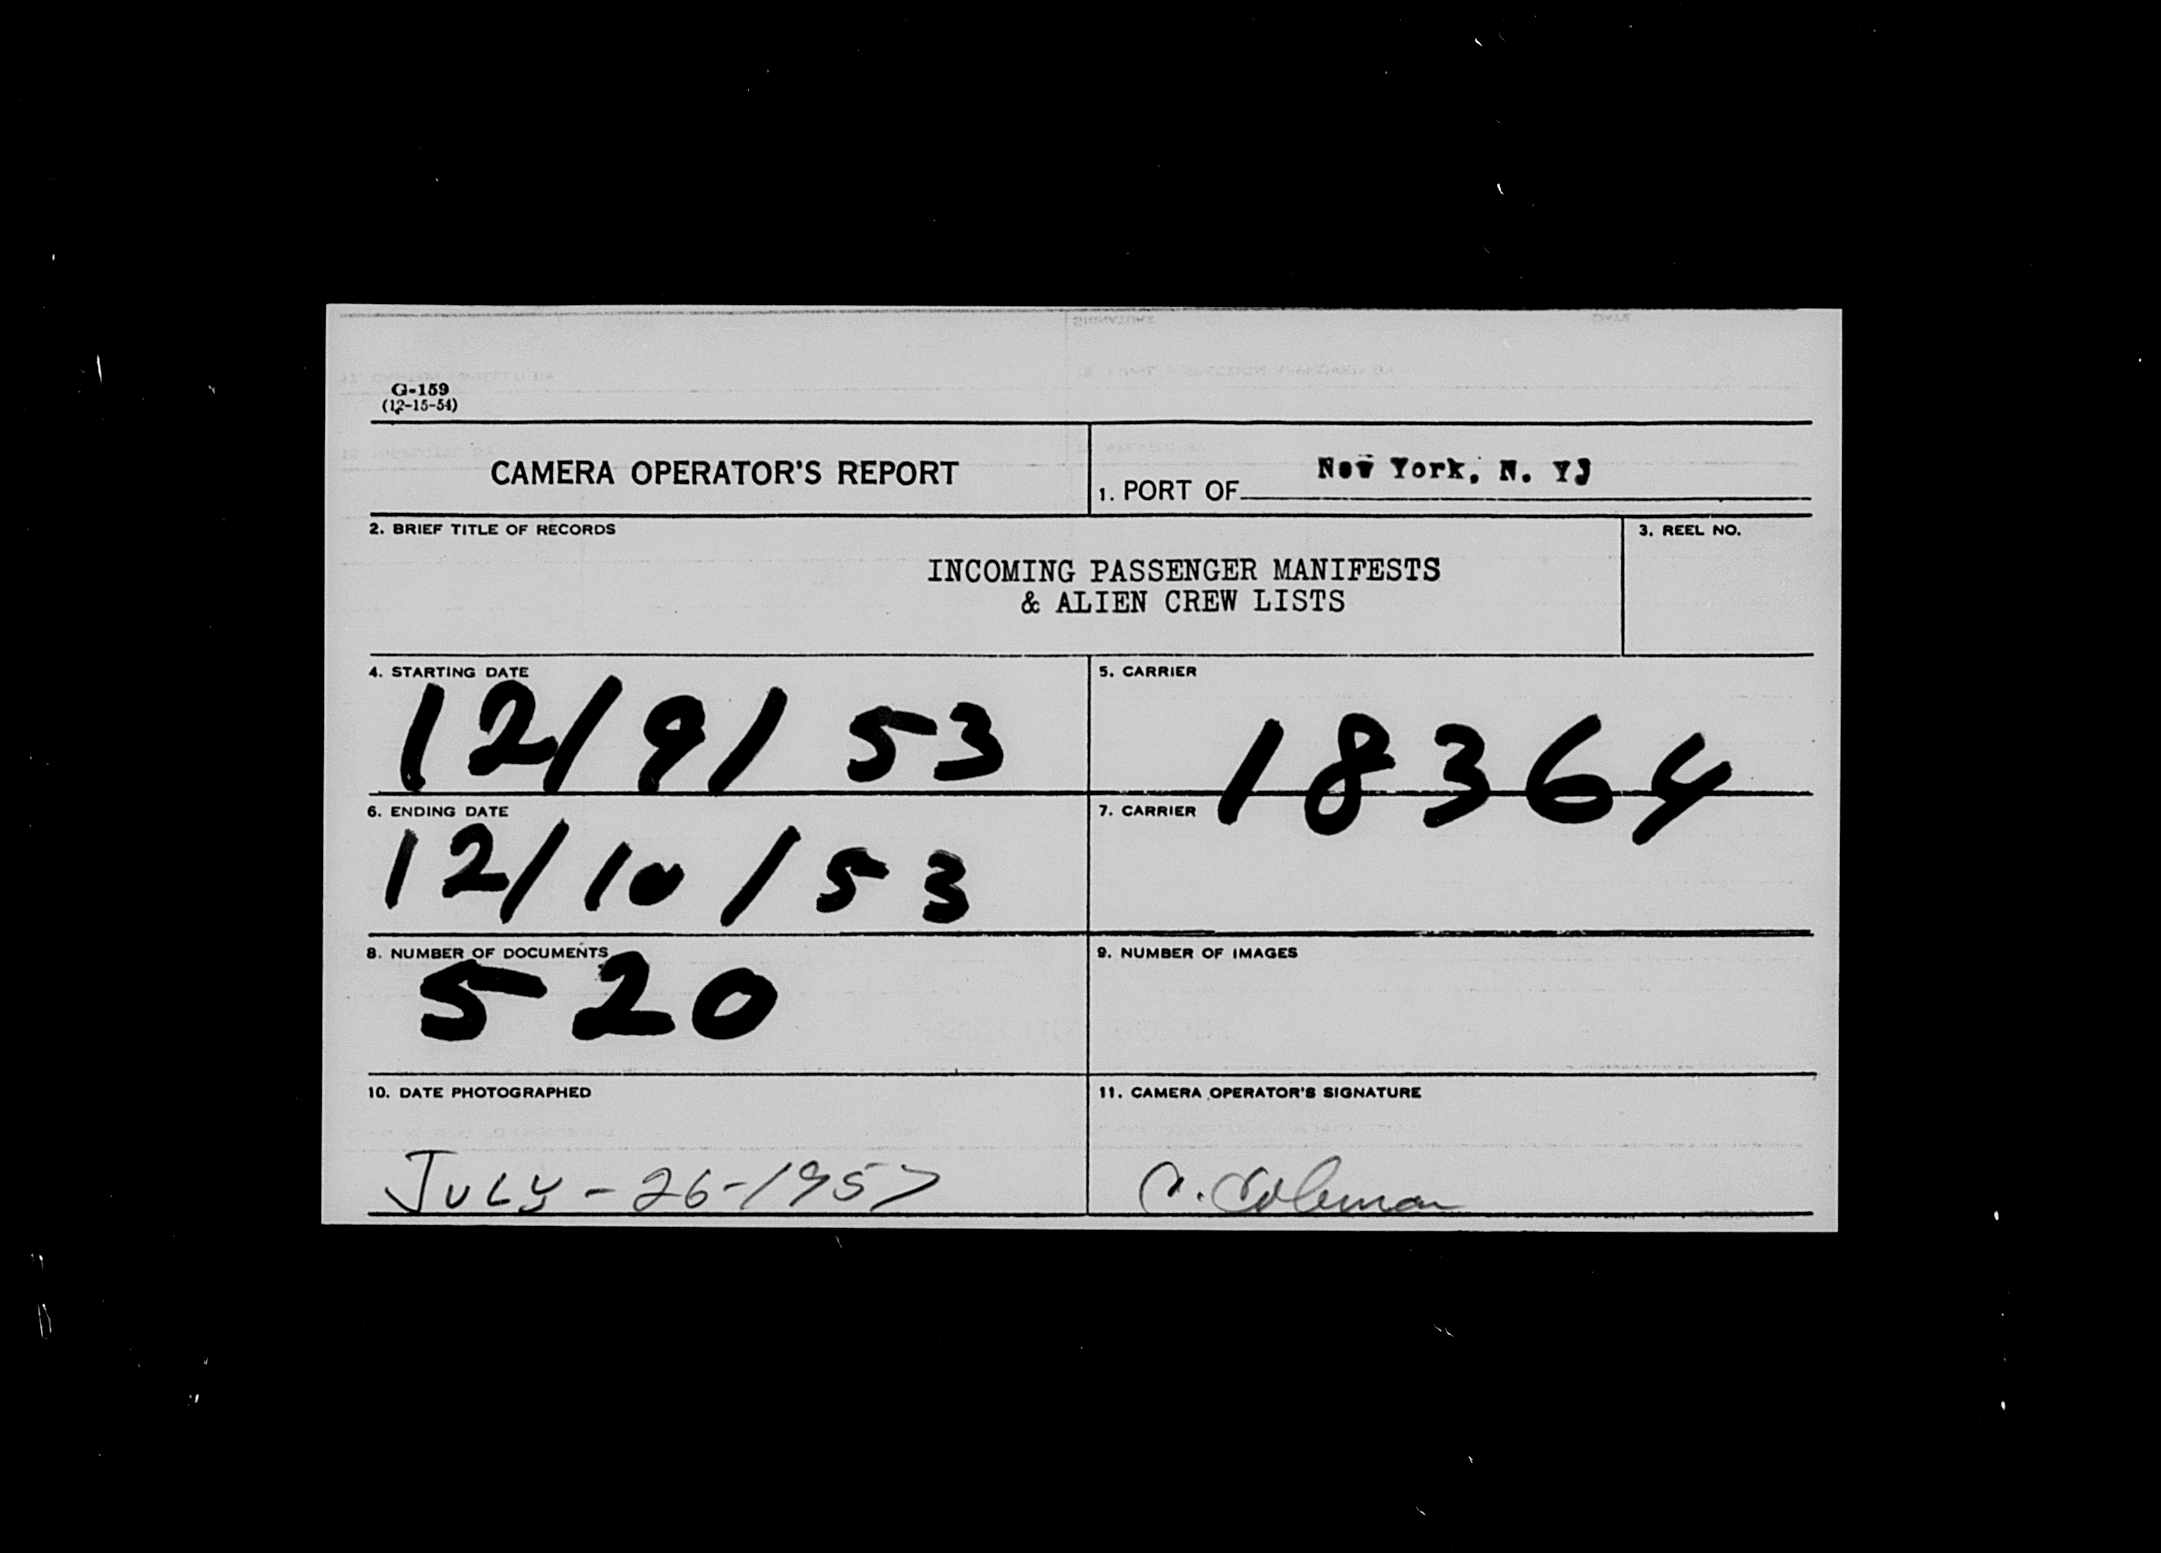 G-159
(12-15-54)
CAMERA OPERATOR'S REPORT
1. PORT OF New York, N. Y.
2. BRIEF TITLE OF RECORDS
INCOMING PASSENGER MANIFESTS
& ALIEN CREW LISTS
3. REEL NO.
4. STARTING DATE
12/9/53
5. CARRIER
18364
6. ENDING DATE
12/10/53
7. CARRIER
8. NUMBER OF DOCUMENTS
520
9. NUMBER OF IMAGES
10. DATE PHOTOGRAPHED
JULY-26-1957
11. CAMERA OPERATOR'S SIGNATURE
Coleman